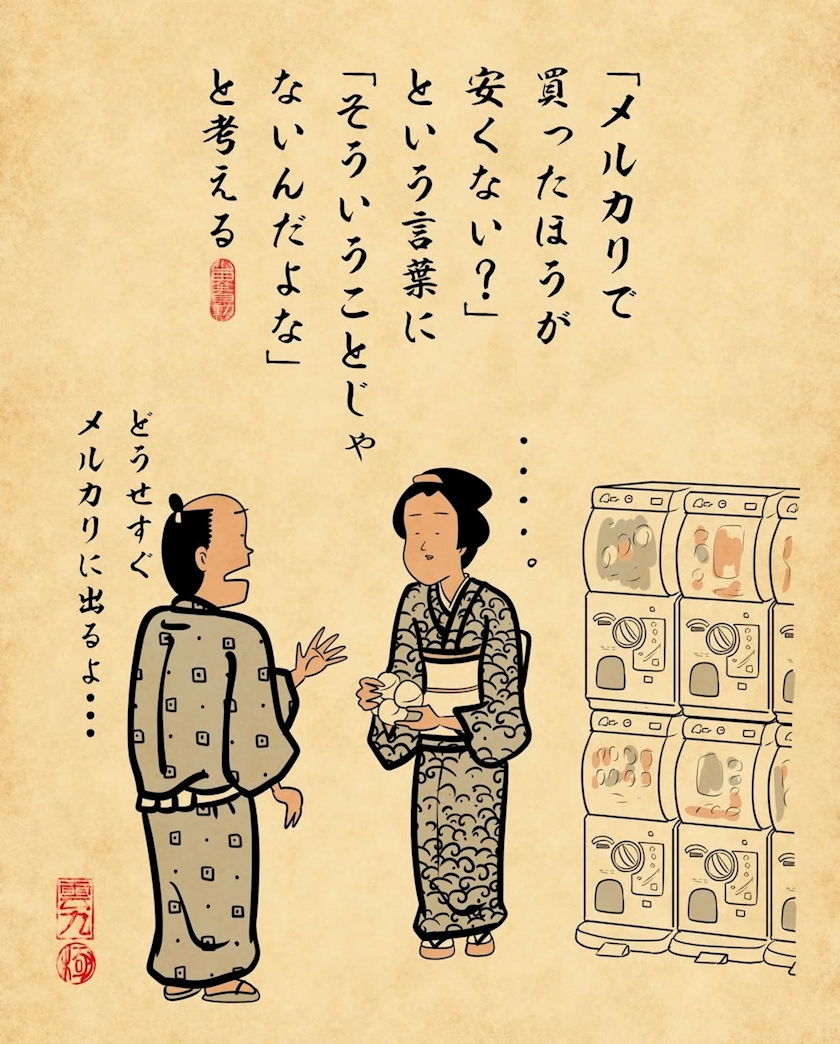 「メルカリで
買ったほうが
安くない？」
という言葉に
「そういうことじゃ
ないんだよな」
と考える
・・・・。
どうせすぐ
メルカリに出るよ・・・